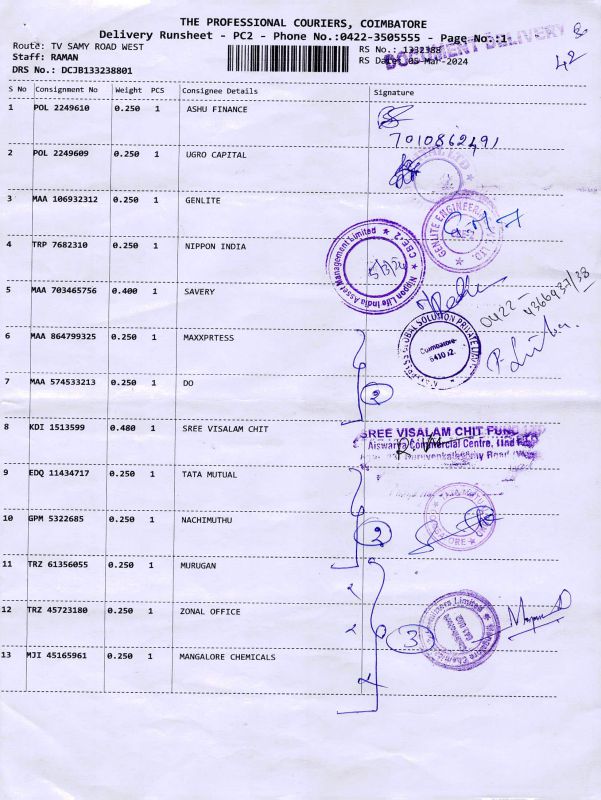 THE PROFESSIONAL COURIERS, COIMBATORE
Delivery Runsheet - PC2 - Phone No.:0422-3505555 - Page No.:1
Route: TV SAMY ROAD WEST
RS No.: 1332388
DOCUMENT DELIVERY
Staff: RAMAN
RS Date: 05-Mar-2024
42
DRS No.: DCJB133238801
S No Consignment No Weight PCS Consignee Details Signature
1 POL 2249610 0.250 1 ASHU FINANCE
7010862491
2 POL 2249609 0.250 1 UGRO CAPITAL
3 MAA 106932312 0.250 1 GENLITE
GENLITE ENGINEER LTD.
4 TRP 7682310 0.250 1 NIPPON INDIA
Nippon Life India Asset Management Limited
CBE-2
5/3/24
5 MAA 703465756 0.400 1 SAVERY
0422-4366937/38
6 MAA 864799325 0.250 1 MAXXPRTESS
GLOBAL SOLUTION PRIVATE LIMITED
Coimbatore-
641012.
7 MAA 574533213 0.250 1 DO
2
8 KDI 1513599 0.480 1 SREE VISALAM CHIT
SREE VISALAM CHIT FUND LTD
Aiswarya Commercial Centre, IInd
Road
9 EDQ 11434717 0.250 1 TATA MUTUAL
10 GPM 5322685 0.250 1 NACHIMUTHU
2
11 TRZ 61356055 0.250 1 MURUGAN
12 TRZ 45723180 0.250 1 ZONAL OFFICE
3
Mangalore Chemicals
Limited
13 MJI 45165961 0.250 1 MANGALORE CHEMICALS